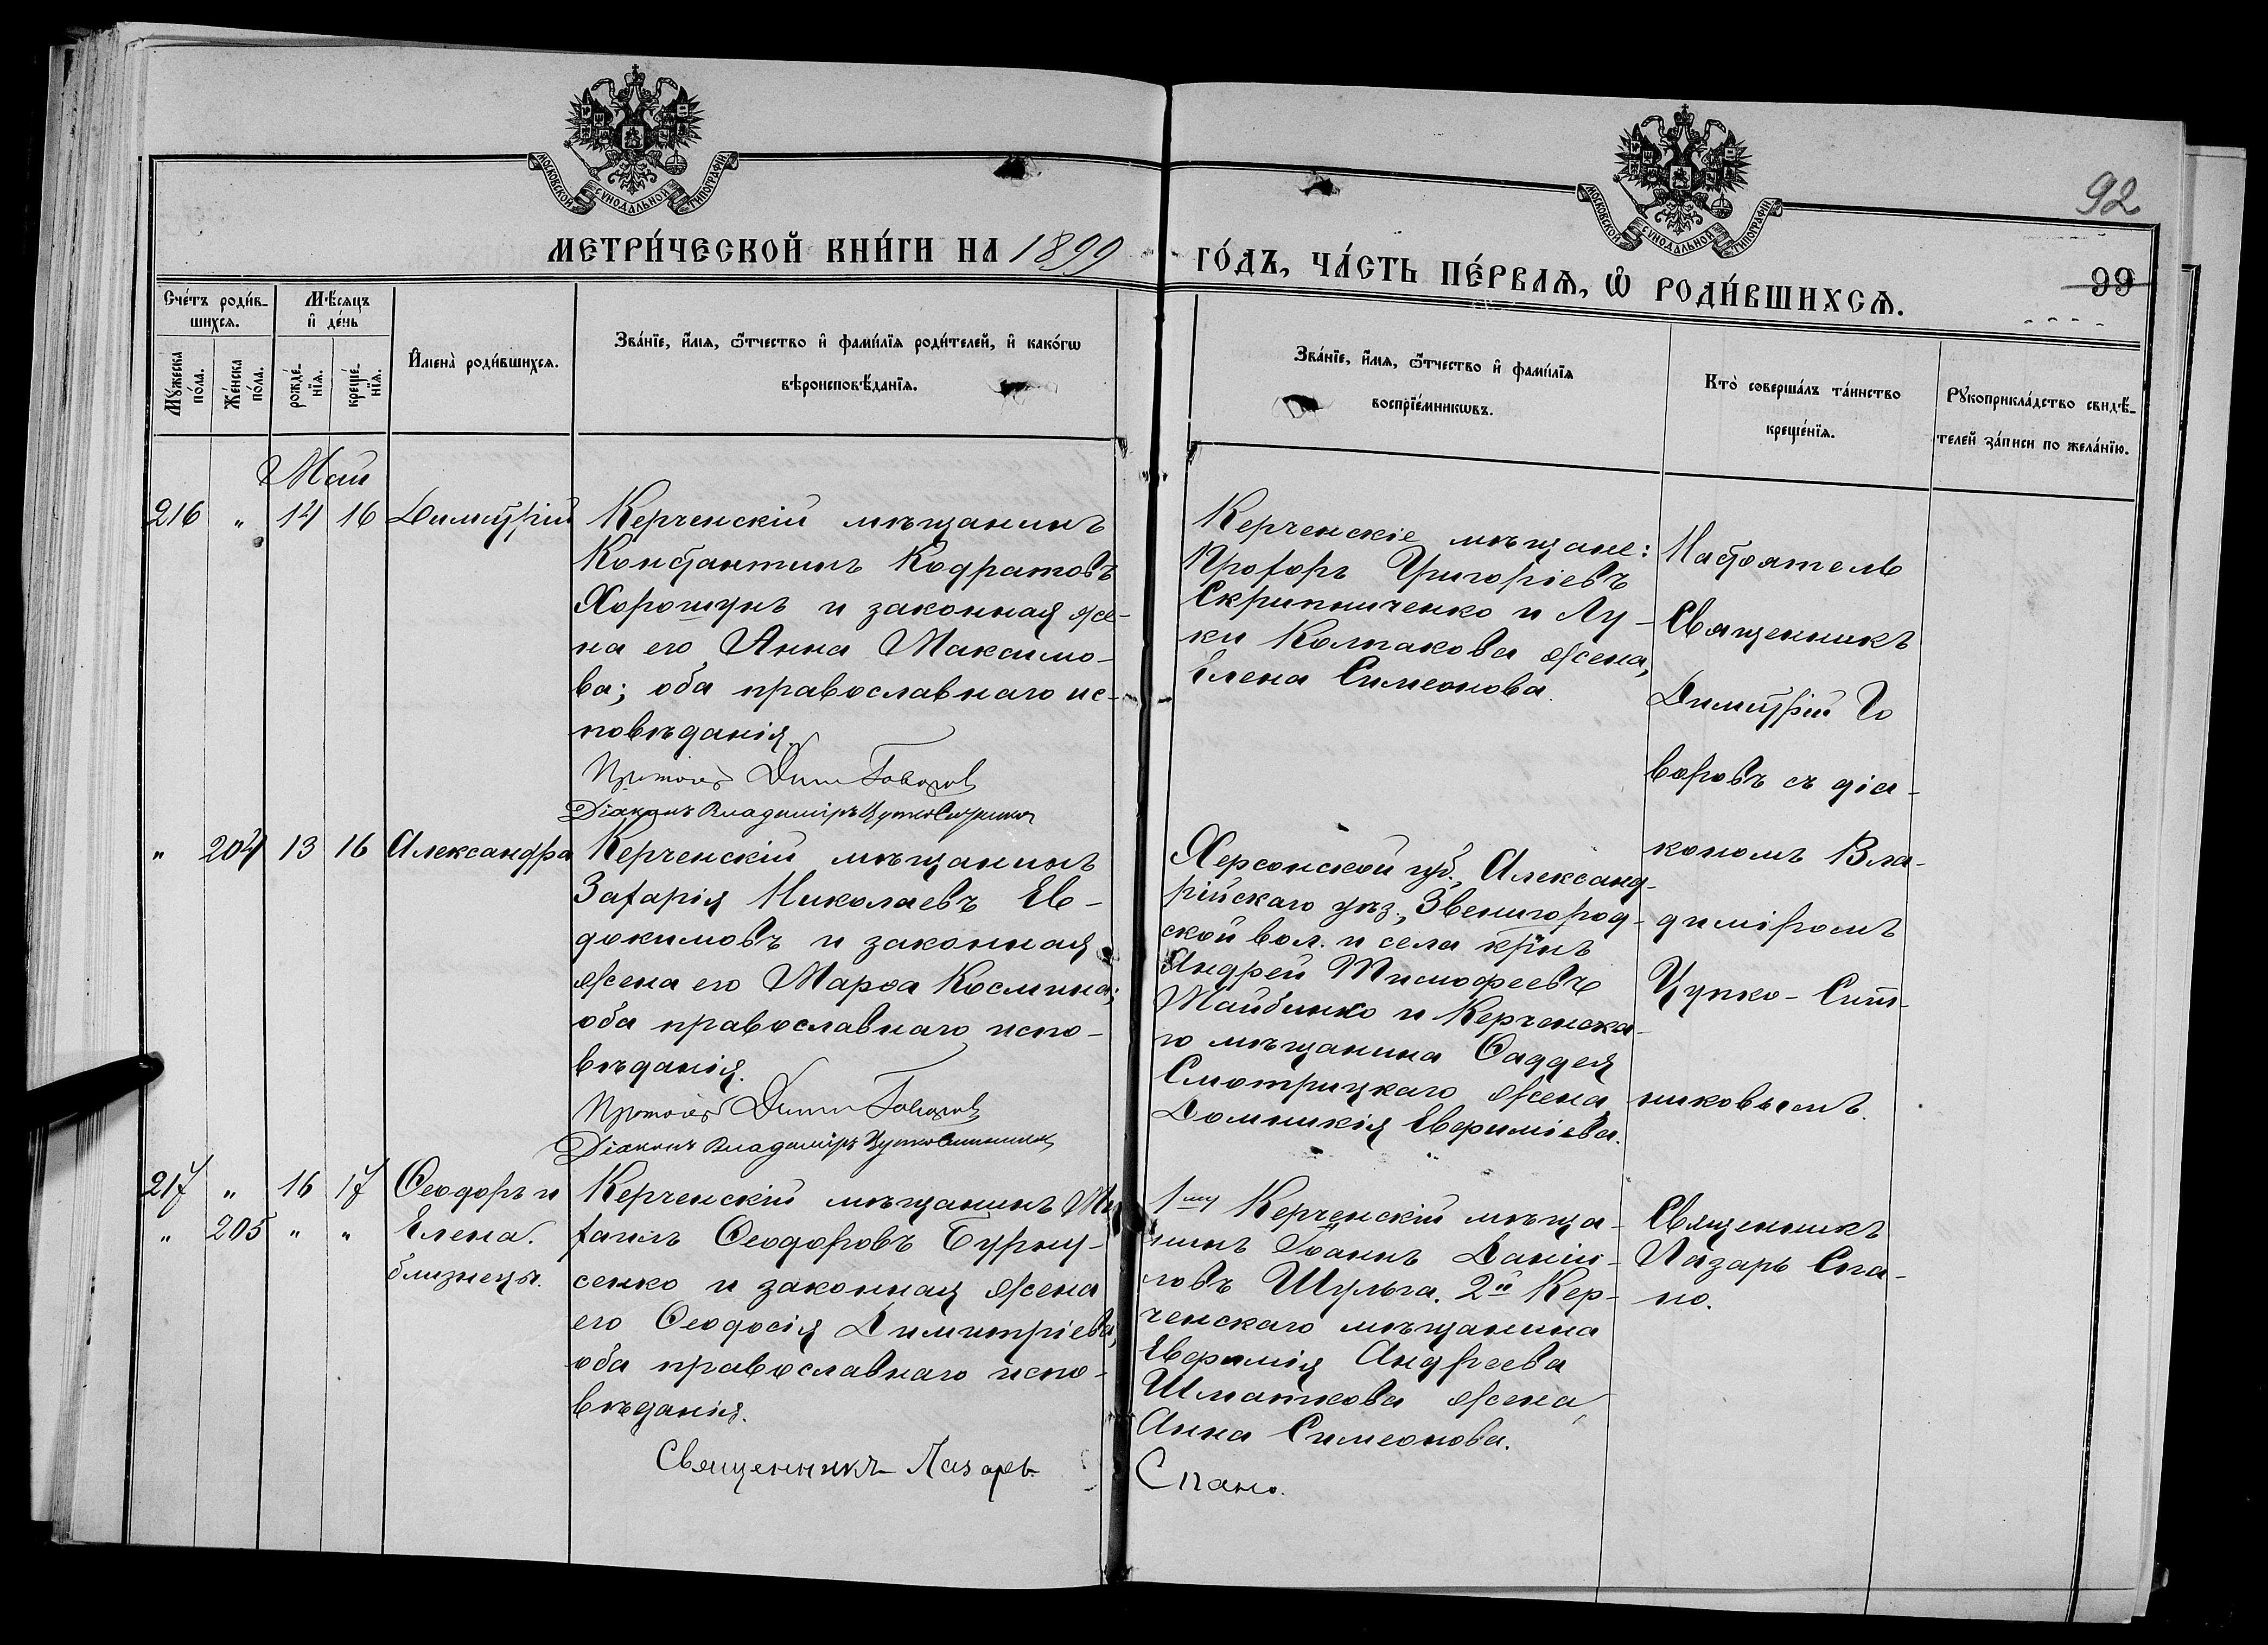 МОСКОВСКОЙ СѴНОДАЛЬНОЙ ТИПОГРАФІИ
МОСКОВСКОЙ СѴНОДАЛЬНОЙ ТИПОГРАФІИ
92
МЕТРИ́ЧЕСКОЙ КНИ́ГИ НА 1899
ГО́ДЪ, ЧА́СТЬ ПЕ́РВАѦ, Ѽ РОДИ́ВШИХСѦ.
99
Сче́тъ роди́в-
шихсѧ.
Мѣ́сяцъ
и҆ де́нь
Мꙋ́жеска
по́ла.
Же́нска
по́ла.
рожде́-
нїѧ.
креще́-
нїѧ.
И҆мена̀ роди́вшихсѧ.
Зва́нїе, и҆́мѧ, ѻ҆́тчество и҆ фами́лїѧ роди́телей, и҆ како́гѡ
вѣроисповѣ́данїѧ.
Зва́нїе, и҆́мѧ, ѻ҆́тчество и҆ фами́лїѧ
воспрїе́мникѡвъ.
Кто̀ соверша́лъ та́инство
креще́нїѧ.
Рꙋкоприкла́дство свидѣ́-
телей за́писи по жела́нїю.
Май
216 " 14 16 Димитрій
Керченскій мѣщанинъ
Константинъ Кодратовъ
Хорошунъ и законная же-
на его Анна Максимо-
ва; оба православнаго ис-
повѣданія.
Протоіер Дим Говоров
Діаконъ Владиміръ Цупко-Ситников
Керченскіе мѣщане:
Прохоръ Григоріевъ
Скрипниченко и Лу-
ки Колпакова жена,
Елена Симеонова.
Настоятель
Священникъ
Димитрій Го
воровъ съ діа-
кономъ Вла-
диміромъ
Цупко-Сит-
никовымъ.
" 204 13 16 Александра
Керченскій мѣщанинъ
Захарія Николаевъ Ев-
докимовъ и законная
жена его Марѳа Космина;
оба православнаго испо-
вѣданія.
Протоіер Дим Говоров
Діаконъ Владиміръ Цупко-Ситников
Херсонской губ., Александ-
рійскаго уѣз., Звенигород-
ской вол. и села крїнъ
Андрей Тимофеевъ
Майбенко и Керченска-
го мѣщанина Ѳаддея
Смотрицкаго жена,
Домникія Евфиміева.
217 " 16 17 Ѳеодоръ и
" 205 " " Елена.
близнецы.
Керченскій мѣщанинъ Ми
хаилъ Ѳеодоровъ Бурну-
сенко и законная жена
его Ѳеодосія Димитріева,
оба православнаго испо-
вѣданія.
Священникъ Лазарь
Спано.
1му Керченскій мѣща-
нинъ Іоаннъ Даніи-
ловъ Шульга. 2й Кер-
ченскаго мѣщанина
Евфимія Андреева
Шматкова жена,
Анна Симеонова.
Священникъ
Лазарь Спа-
но.